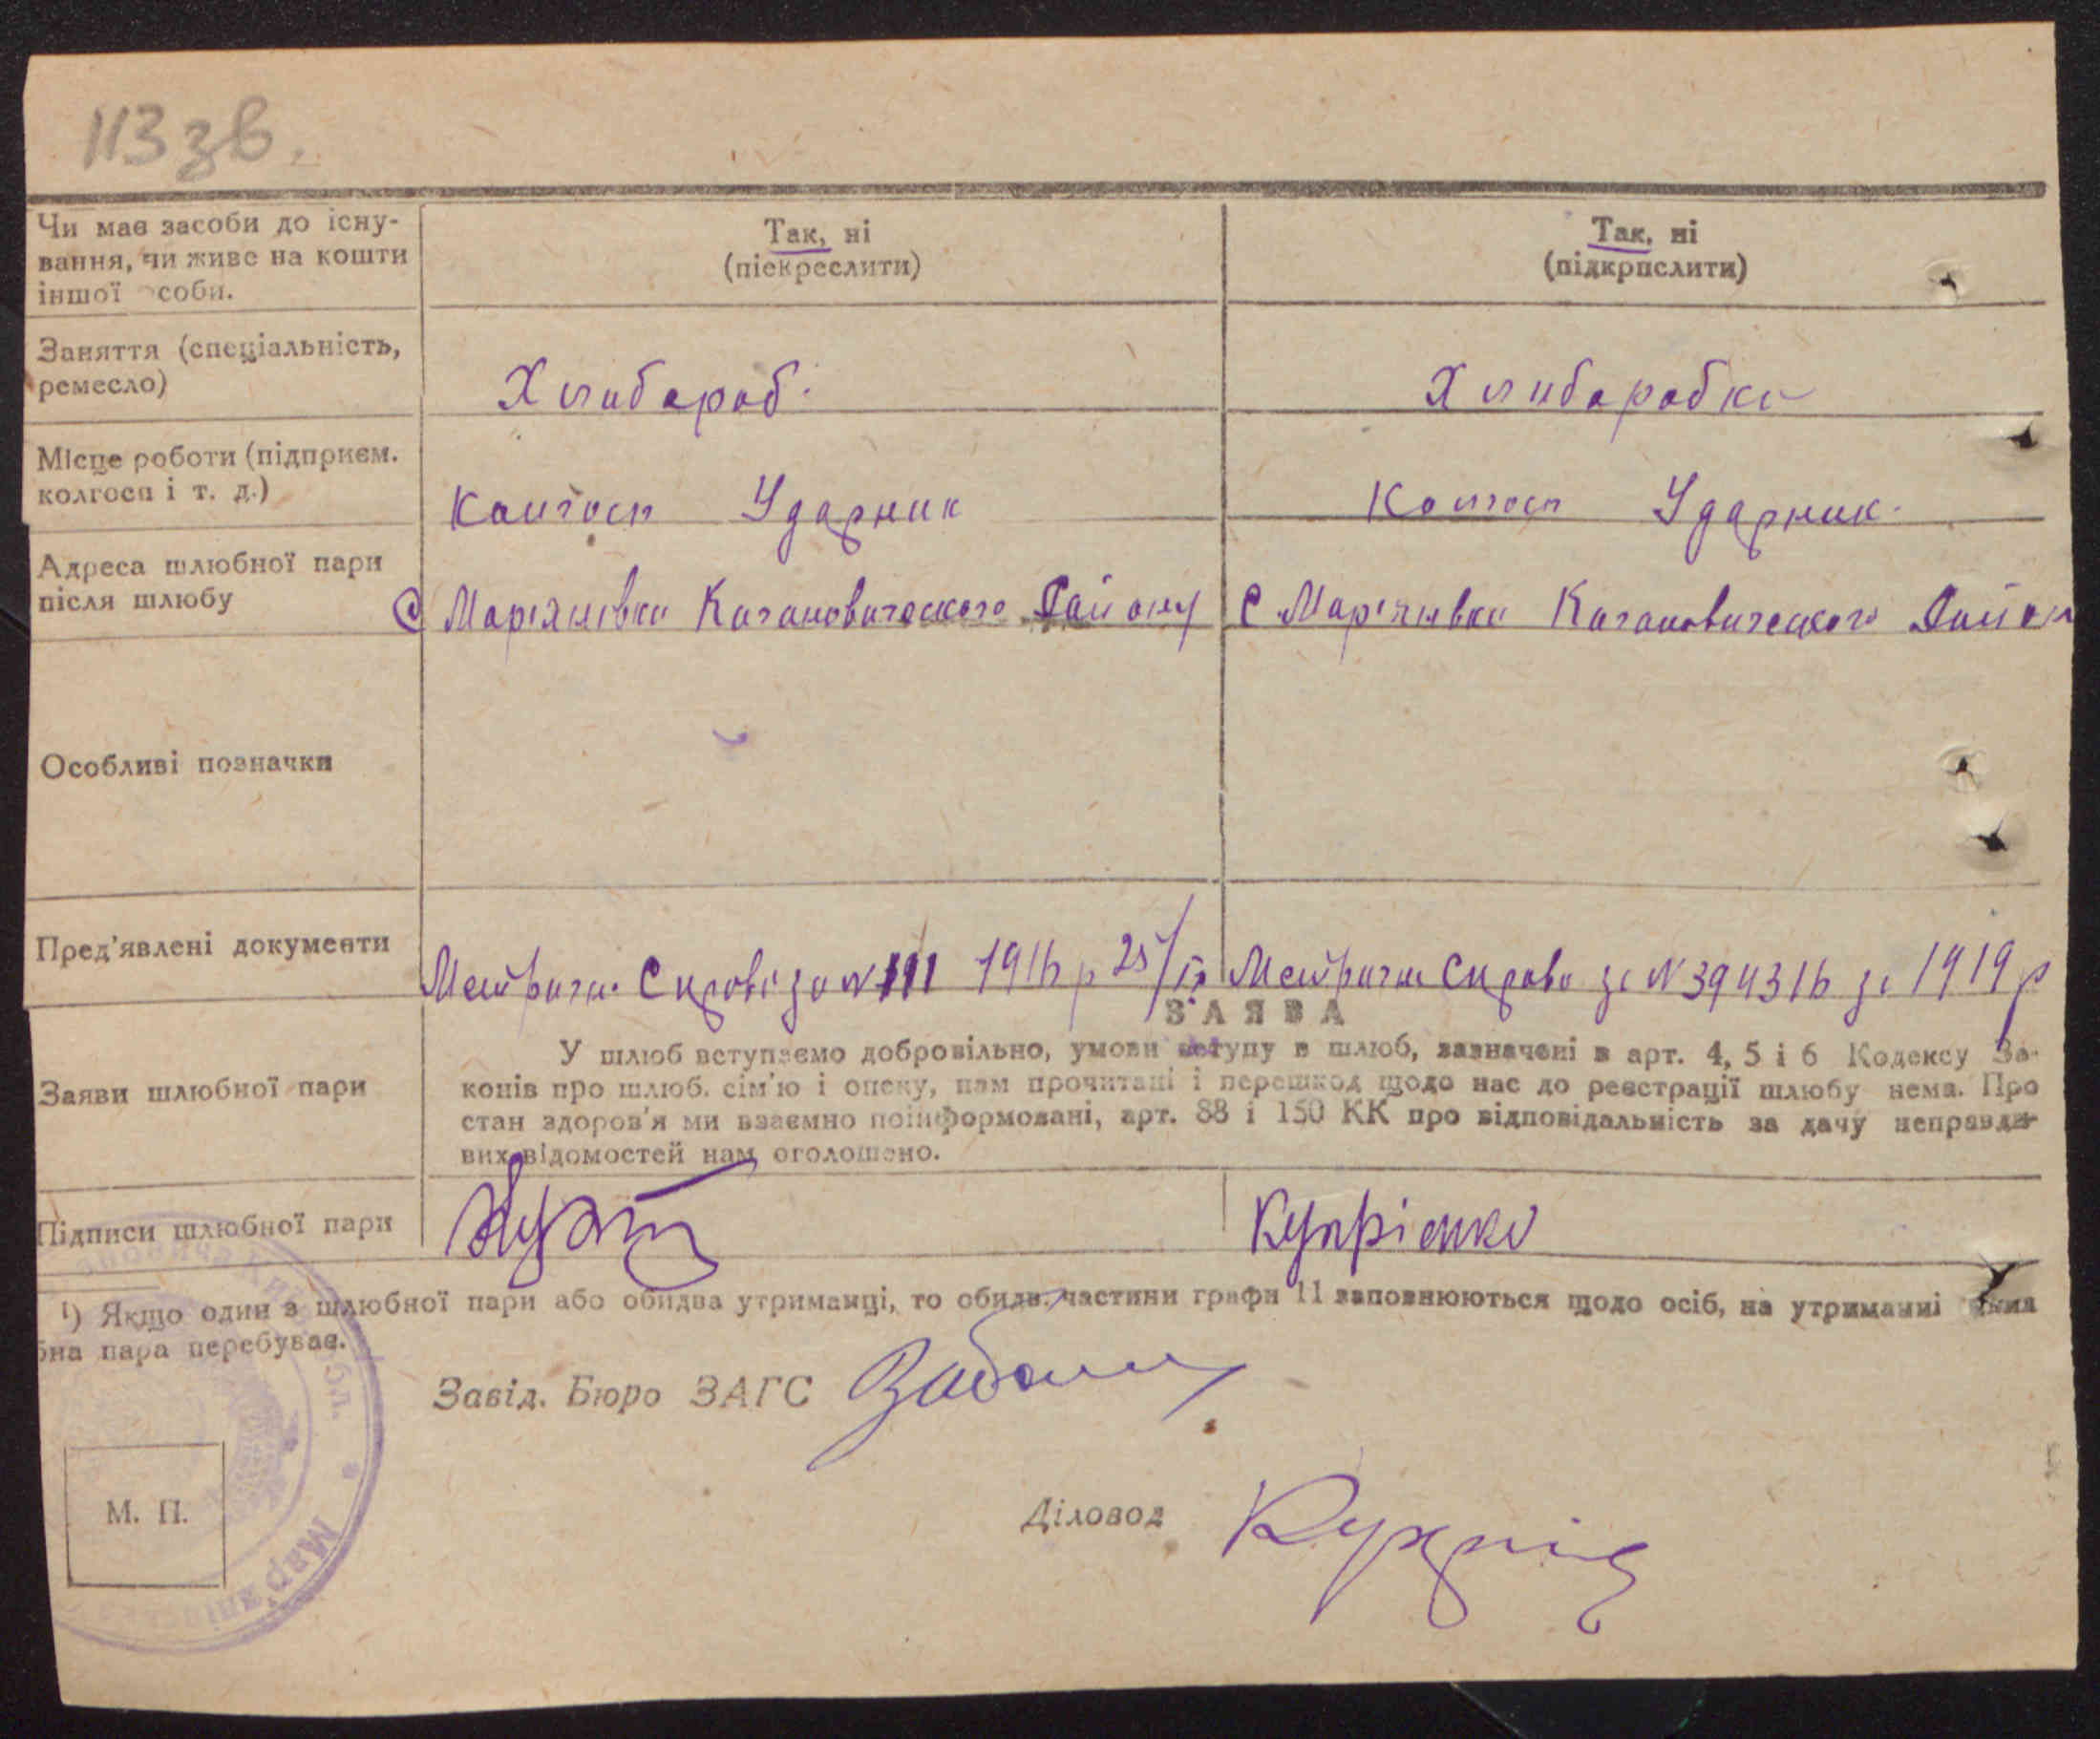 113 зв.
Чи має засоби до існу-
вання, чи живе на кошти
іншої особи.
Так, ні
(піекреслити)
Так, ні
(підкрпслити)
Заняття (спеціальність,
ремесло)
Хлибороб.
Хлиборобка
Місце роботи (підприєм.
колгосп і т. д.)
Колгосп Ударник
Колгосп Ударник.
Адреса шлюбної пари
після шлюбу
с Маріянівка Кагановического Району
с Маріянівка Кагановического Район
Особливі позначки
Пред'явлені документи
Метрична Справка за № 111 1916 р 25/
Метрична Справка за № 394316 за 1919 р
ЗАЯВА
Заяви шлюбної пари
У шлюб вступаємо добровільно, умови вступу в шлюб, зазначені в арт. 4, 5 і 6 Кодексу За-
конів про шлюб. сім'ю і опеку, нам прочитані і перешкод щодо нас до реєстрації шлюбу нема. Про
стан здоров'я ми взаємно поінформовані, арт. 88 і 150 КК про відповідальність за дачу неправди-
вих відомостей нам оголошено.
Підписи шлюбної пари
Купріенко
¹) Якщо один з шлюбної пари або обидва утриманці, то обидві частини графи 11 заповнюються щодо осіб, на утриманні
бна пара перебуває.
Завід. Бюро ЗАГС
Діловод
М. П.
Мар'янівська